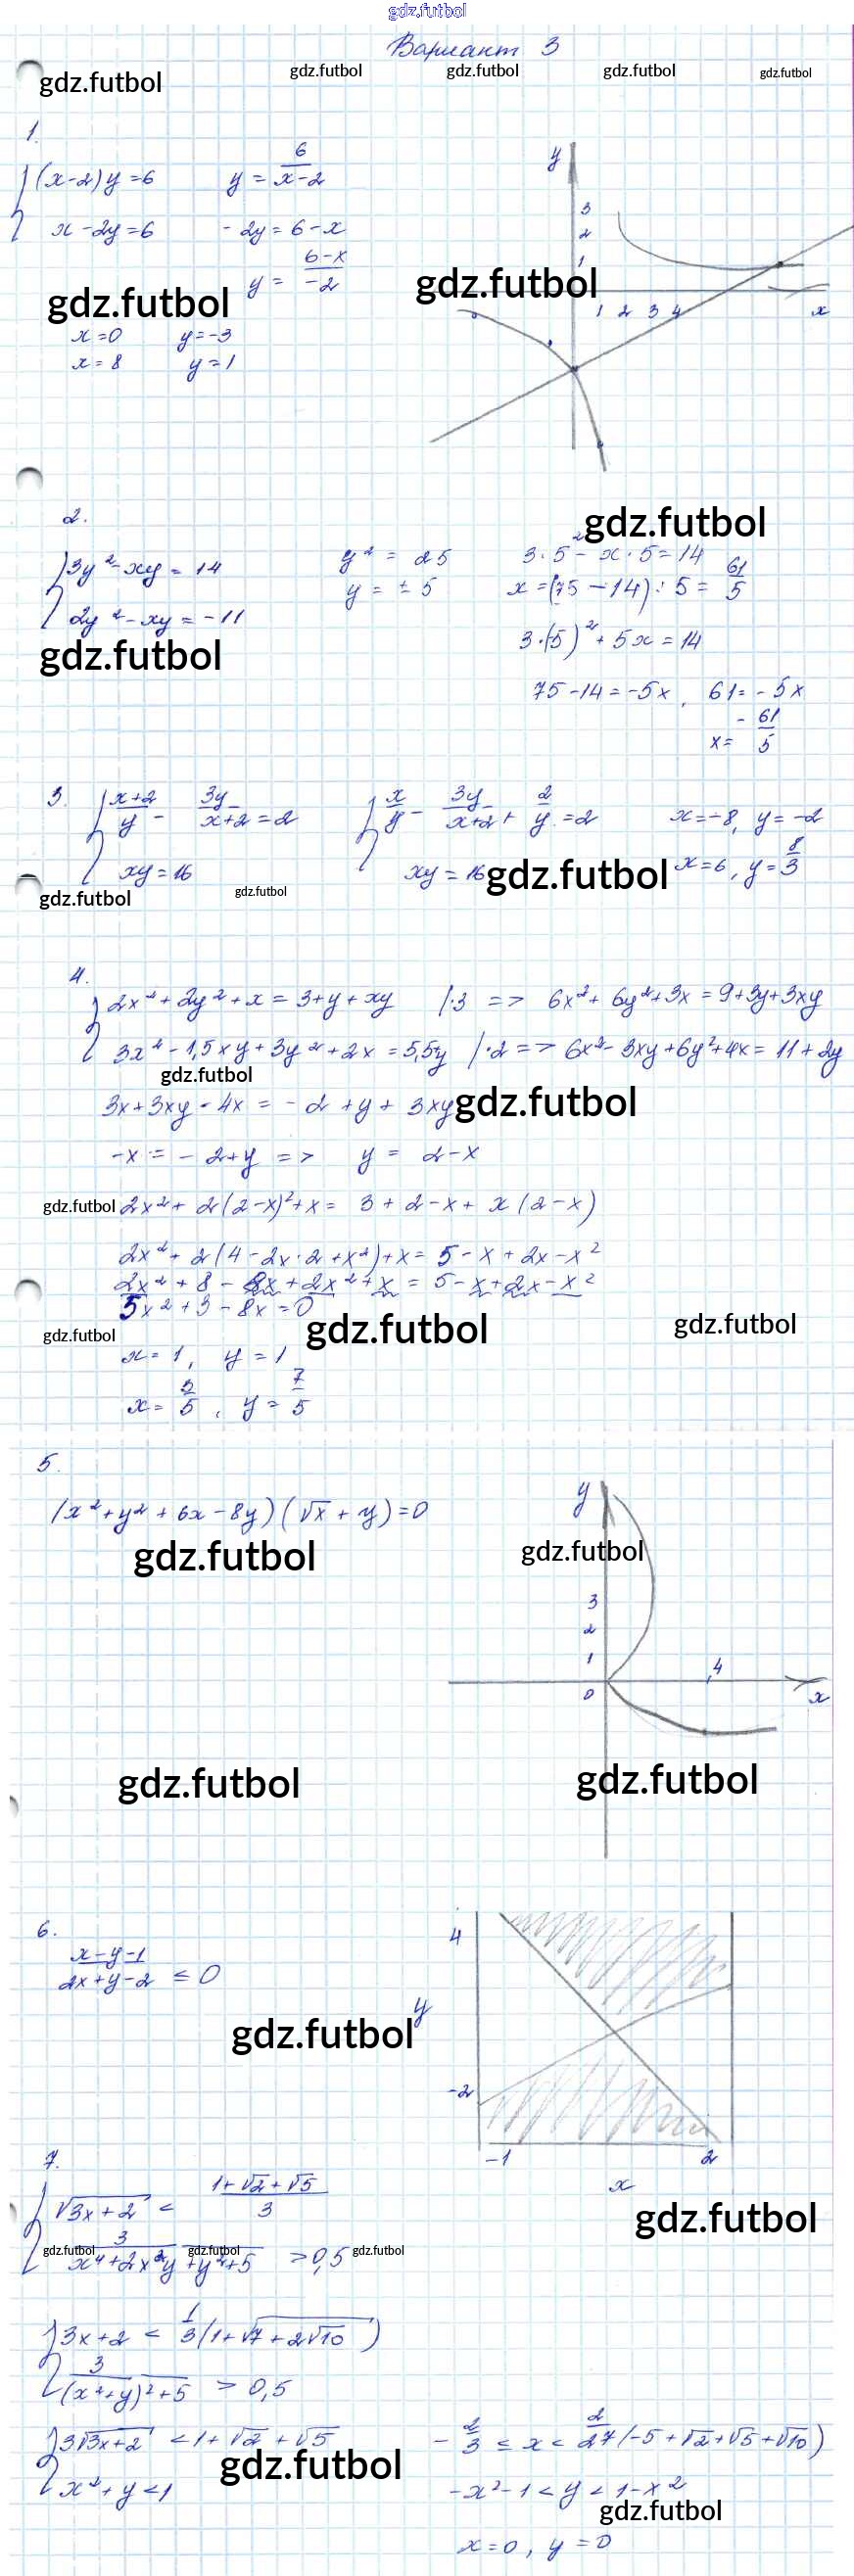 gdz.futbol
Вариант 3
gdz.futbol gdz.futbol gdz.futbol gdz.futbol gdz.futbol
1.
(x-2)y=6 y = 6/(x-2)
x-2y=6 -2y=6-x
y = (6-x)/-2
gdz.futbol
x=0 y=-3
x=8 y=1
y
3
2
1
gdz.futbol
1 2 3 4 x
2.
gdz.futbol
3y²-xy=14 y² = 25 3·5²-x·5=14
2y²-xy=-11 y = ±5 x=(75-14):5= 61/5
gdz.futbol
3·(-5)²+5x=14
75-14=-5x, 61=-5x
x= -61/5
3. (x+2)/y - 3y/(x+2) =2 x/y - 3y/(x+2) + 2/y =2 x=-8, y=-2
xy=16 xy=16 x=6, y=8/3
gdz.futbol gdz.futbol gdz.futbol
4.
2x²+2y²+x=3+y+xy |·3 => 6x²+6y²+3x=9+3y+3xy
3x²-1,5xy+3y²+2x=5,5y |·2 => 6x²-3xy+6y²+4x=11+2y
gdz.futbol
3x+3xy-4x = -2+y+3xy
gdz.futbol
-x = -2+y => y = 2-x
gdz.futbol
2x²+2(2-x)²+x= 3+2-x+x(2-x)
2x²+2(4-2x·2+x²)+x=5-x+2x-x²
2x²+8-8x+2x²+x=5-x+2x-x²
5x²+3-8x=0
gdz.futbol gdz.futbol gdz.futbol
x=1, y=1
x= 3/5, y= 7/5
5.
(x²+y²+6x-8y)(√x+y)=0
gdz.futbol gdz.futbol
y
3
2
1
0
4
x
gdz.futbol gdz.futbol
6.
(x-y-1)/(2x+y-2) ≤ 0
gdz.futbol
4
y
-2
-1 2
x
7.
√3x+2 < (1+√2+√5)/3
3/(x⁴+2x²y+y²+5) >0,5
gdz.futbol gdz.futbol gdz.futbol
gdz.futbol
3x+2 < 1/3(1+√7+2√10)
3/((x²+y)²+5) > 0,5
3√3x+2 <1+√2+√5 -2/3 ≤ x < 2/27(-5+√2+√5+√10)
x²+y<1 -x²-1<y<1-x²
gdz.futbol
gdz.futbol
x=0, y=0